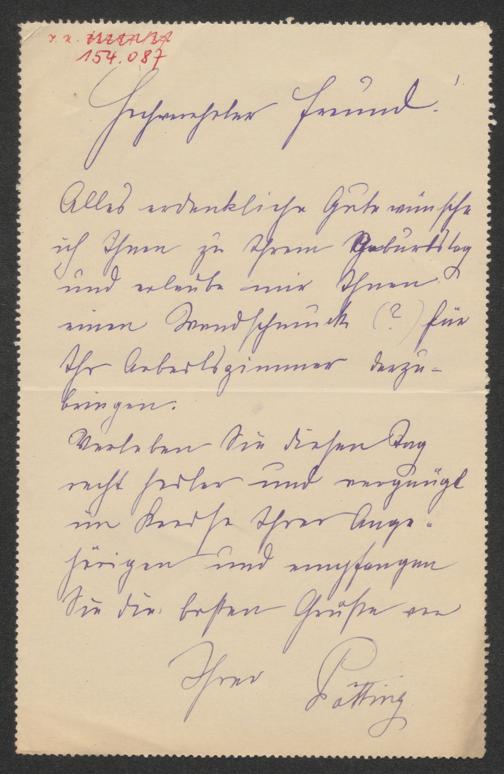 154.087
Hochverehrter Freund!
Alles erdenkliche Gute wünsche
ich Ihnen zu Ihrem Geburtstag
und erlaube mir Ihnen
einen Wandschmuck (?) für
Ihr Arbeitszimmer darzu-
bringen.
Verleben Sie diesen Tag
recht heiter und vergnügt
im Kreise Ihrer Ange-
hörigen und empfangen
Sie die besten Grüße von
Ihrer Pötting